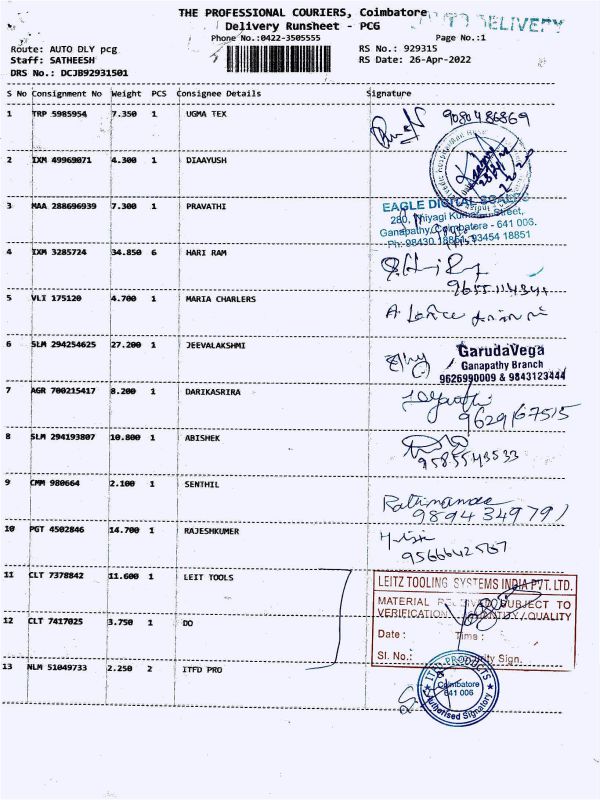 THE PROFESSIONAL COURIERS, Coimbatore
AUTO DELIVERY
Delivery Runsheet - PCG
Phone No.:0422-3505555
Page No.:1
Route: AUTO DLY pcg
RS No.: 929315
Staff: SATHEESH
RS Date: 26-Apr-2022
DRS No.: DCJB92931501
S No Consignment No Weight PCS Consignee Details Signature
1 TRP 5985954 7.350 1 UGMA TEX
9080486869
2 IXM 49969071 4.300 1 DIAAYUSH
3 MAA 288696939 7.300 1 PRAVATHI
EAGLE DIGITAL SCALES
280, Thiyagi Kumaran Street,
Ganapathy, Coimbatore - 641 006.
Ph: 98430 18851, 93454 18851
4 IXM 3285724 34.850 6 HARI RAM
5 VLI 175120 4.700 1 MARIA CHARLERS
6 SLM 294254625 27.200 1 JEEVALAKSHMI
GarudaVega
Ganapathy Branch
9626990009 & 9843123444
7 AGR 700215417 8.200 1 DARIKASRIRA
9629167515
8 SLM 294193807 10.800 1 ABISHEK
9585543533
9 CMM 980664 2.100 1 SENTHIL
9894349791
10 PGT 4502846 14.700 1 RAJESHKUMER
9566642567
11 CLT 7378842 11.600 1 LEIT TOOLS
LEITZ TOOLING SYSTEMS INDIA PVT. LTD.
MATERIAL RECEIVED SUBJECT TO
VERIFICATION QUANTITY / QUALITY
12 CLT 7417025 3.750 1 DO
Date : Time :
Sl. No.: Security Sign.
13 NLM 51049733 2.250 2 ITFD PRO
PRODUCTS
Coimbatore
641 006
Authorised Signatory